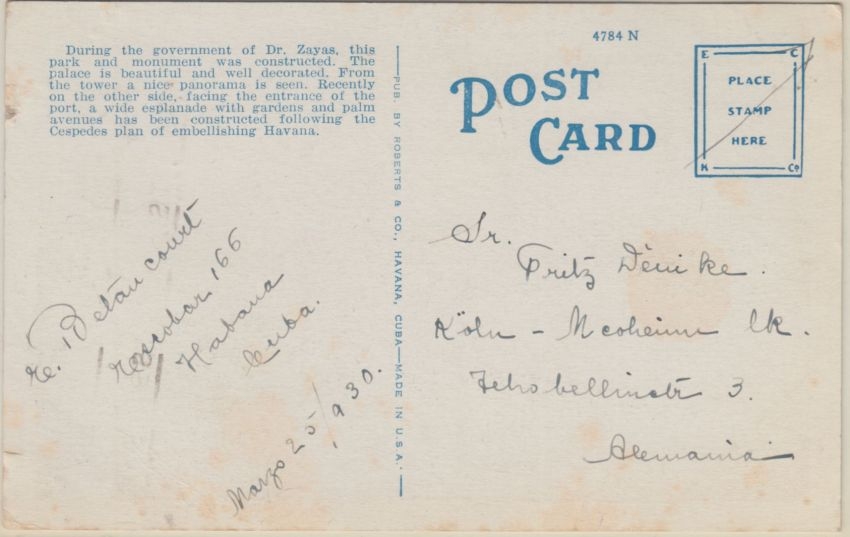 During the government of Dr. Zayas, this
park and monument was constructed. The
palace is beautiful and well decorated. From
the tower a nice panorama is seen. Recently
on the other side, facing the entrance of the
port, a wide esplanade with gardens and palm
avenues has been constructed following the
Cespedes plan of embellishing Havana.
Betancourt
Escobar 166
Habana
Cuba.
Marzo 25/930.
PUB. BY ROBERTS & CO., HAVANA, CUBA—MADE IN U.S.A.
4784 N
POST
CARD
E C
PLACE
STAMP
HERE
K Co
Sr.
Fritz Denike.
Köln -
3.
Alemania